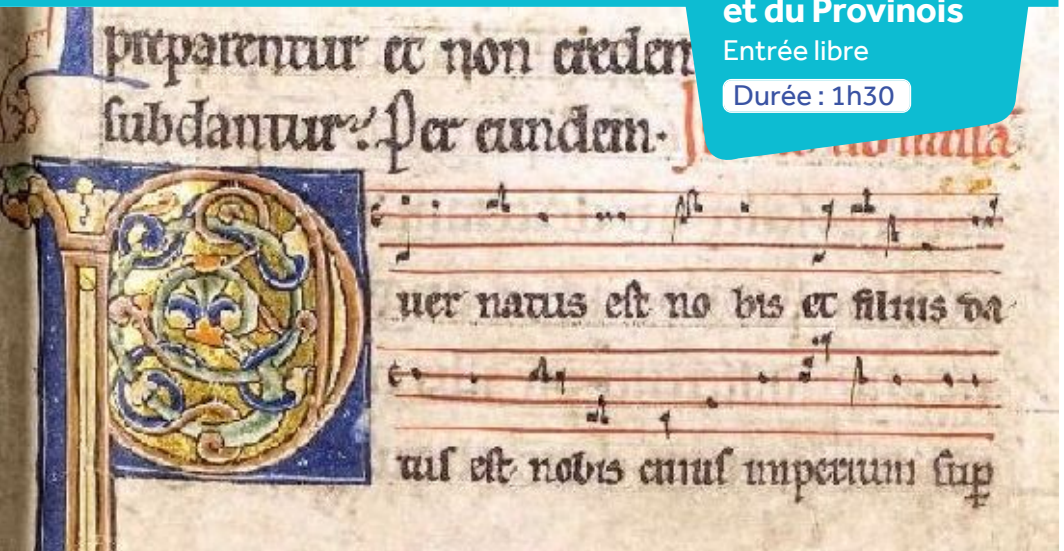 et du Provinois
Entrée libre
Durée : 1h30
preparentur et non creden
subdantur. Per eundem.
Puer natus est no bis et filius da
tus est nobis cuius imperium sup